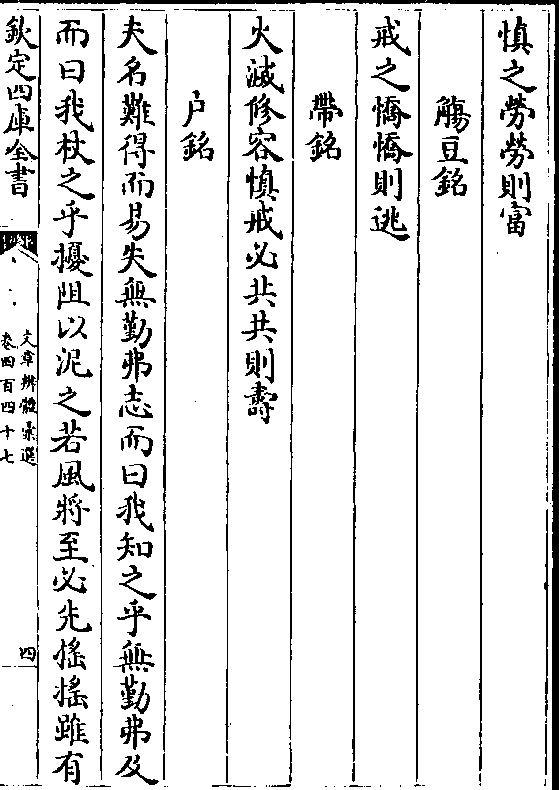 慎之勞勞則富
觴豆銘
戒之憍憍則逃
帶銘
火滅修容慎戒必共共則壽
户銘
夫名難得而易失無勤弗志而曰我知之乎無勤弗及
而曰我杖之乎擾阻以泥之若風將至必先摇摇雖有
欽定四庫全書
文章辨體彚選
卷四百四十七
四